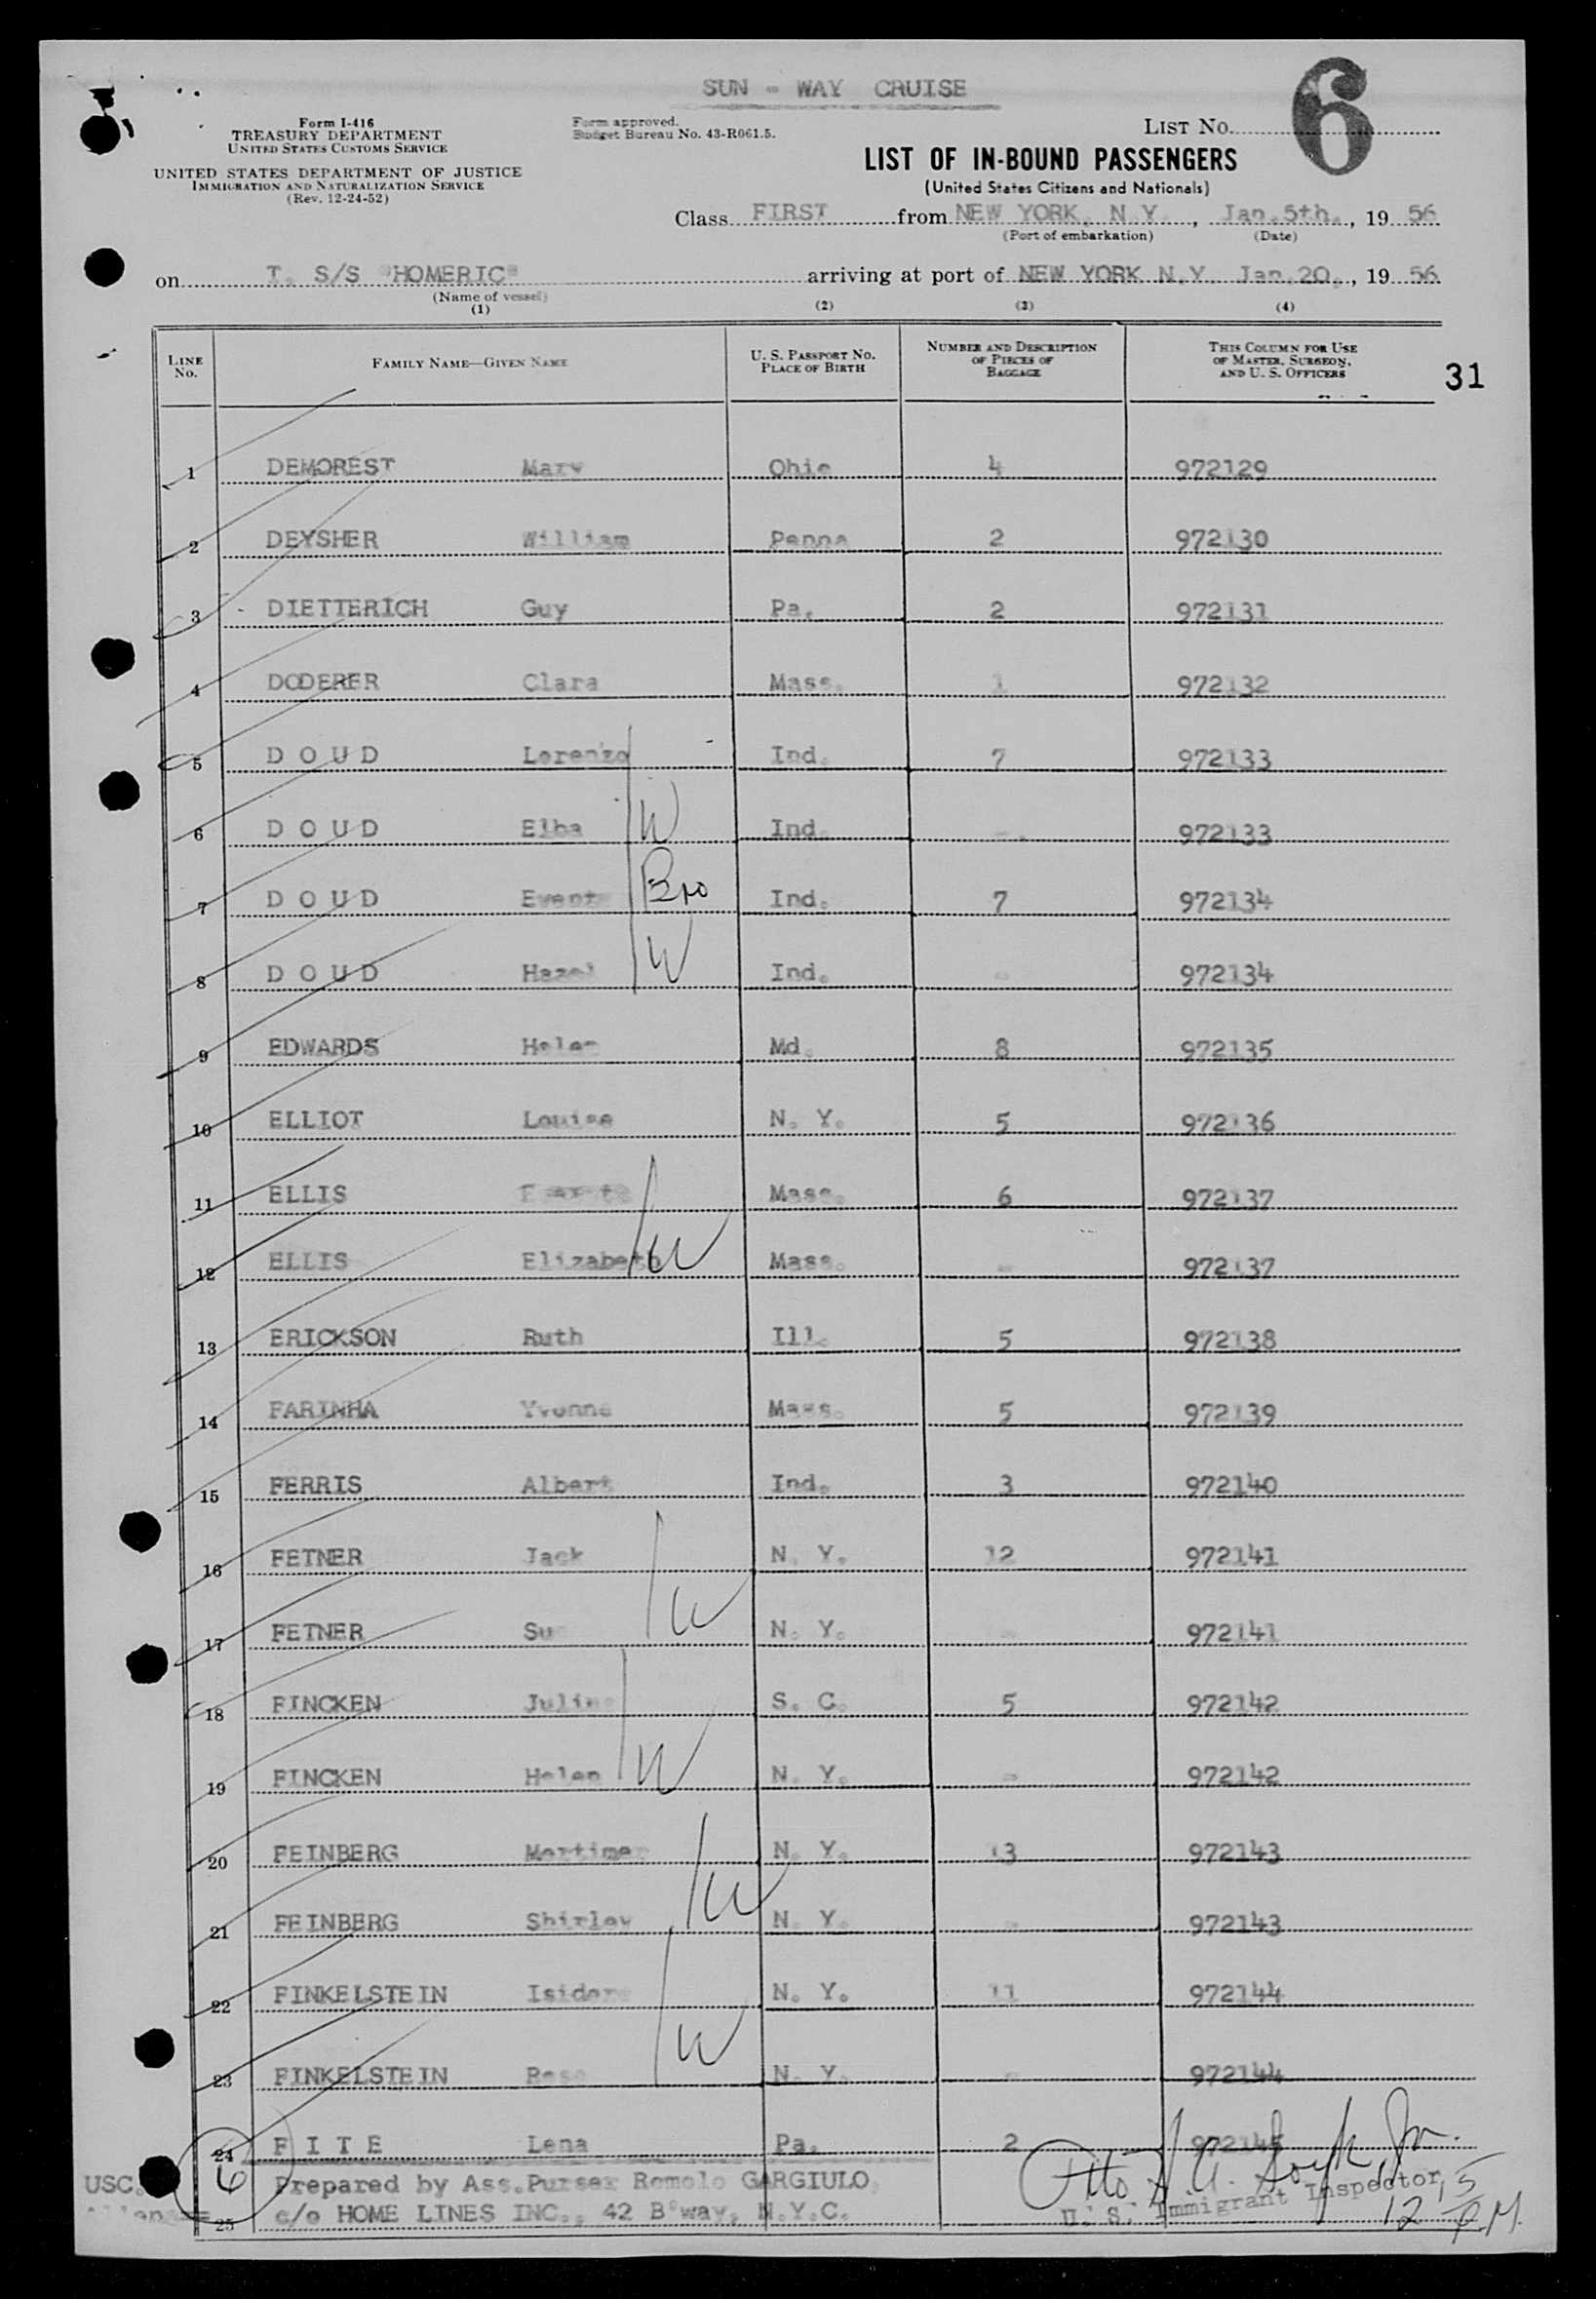 SUN - WAY CRUISE
6
Form I-416
TREASURY DEPARTMENT
UNITED STATES CUSTOMS SERVICE
UNITED STATES DEPARTMENT OF JUSTICE
IMMIGRATION AND NATURALIZATION SERVICE
(Rev. 12-24-52)
Form approved.
Budget Bureau No. 43-R061.5.
LIST NO.
LIST OF IN-BOUND PASSENGERS
(United States Citizens and Nationals)
Class FIRST from NEW YORK, N.Y., Jan.5th., 19 56
(Port of embarkation) (Date)
on T. S/S "HOMERIC" arriving at port of NEW YORK N.Y. Jan.20., 19 56
(Name of vessel)
(1) (2) (3) (4)
LINE NO. FAMILY NAME—GIVEN NAME U. S. PASSPORT NO. PLACE OF BIRTH NUMBER AND DESCRIPTION OF PIECES OF BAGGAGE THIS COLUMN FOR USE OF MASTER, SURGEON, AND U. S. OFFICERS
31
1 DEMOREST Mary Ohio 4 972129
2 DEYSHER William Penna 2 972130
3 DIETTERICH Guy Pa. 2 972131
4 DODERER Clara Mass. 1 972132
5 D O U D Lorenzo Ind. 7 972133
6 D O U D Elba W Ind. - 972133
7 D O U D Bro Ind. 7 972134
8 D O U D Hazel W Ind. - 972134
9 EDWARDS Helen Md. 8 972135
10 ELLIOT Louise N. Y. 5 972136
11 ELLIS Mass. 6 972137
12 ELLIS Elizabeth W Mass. - 972137
13 ERICKSON Ruth Ill. 5 972138
14 FARINHA Yvonne Mass. 5 972139
15 FERRIS Albert Ind. 3 972140
16 FETNER Jack N. Y. 12 972141
17 FETNER W N. Y. - 972141
18 FINCKEN S. C. 5 972142
19 FINCKEN Helen W N. Y. - 972142
20 FEINBERG Mortimer N. Y. 13 972143
21 FEINBERG Shirley W N. Y. - 972143
22 FINKELSTEIN Isidore N. Y. 11 972144
23 FINKELSTEIN Rose W N. Y. - 972144
24 F I T E Lena Pa. 2 972145
USC. 6 Prepared by Ass.Purser Romolo GARGIULO,
25 c/o HOME LINES INC., 42 B'way, N.Y.C.
U. S. Immigrant Inspector
12 15 P.M.